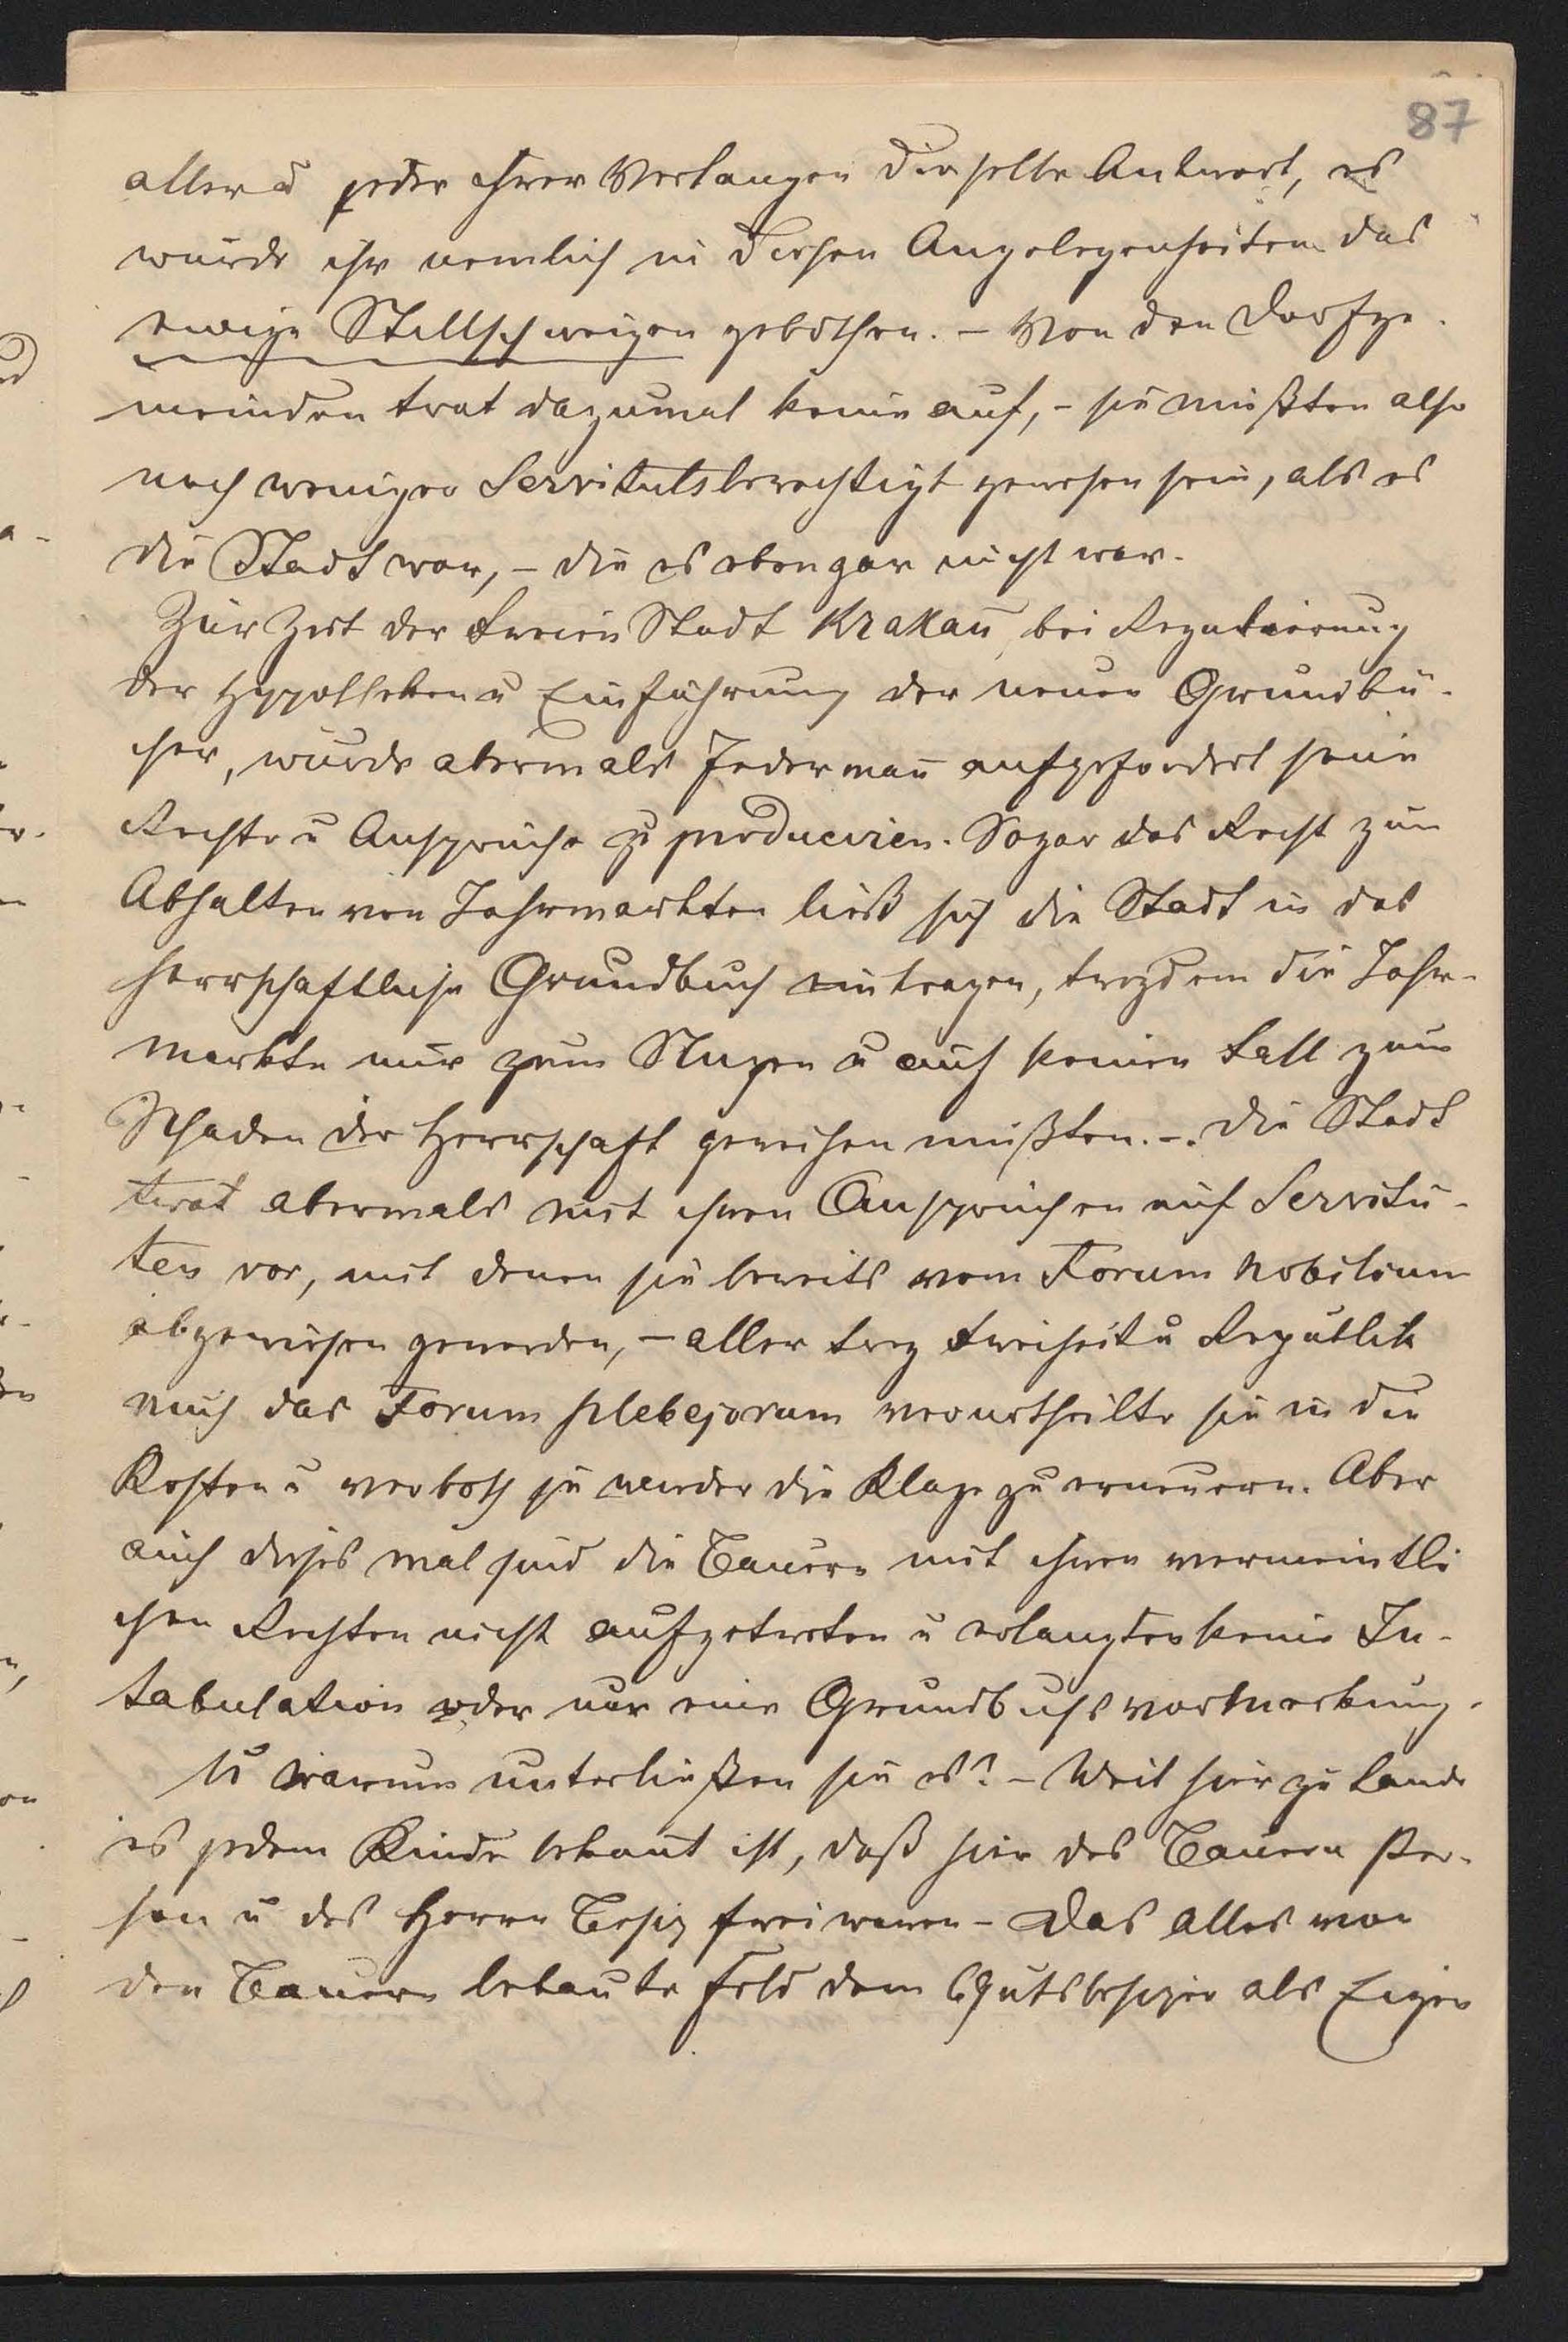 87
aller u jeder ihrer Verlangen dieselbe Antwort, es
wurde ihr nemlich in diesen Angelegenheiten das
ewige Stillschweigen gebothen. – Von den Dorfge-
meinden trat dazumal keine auf, – sie mußten also
noch weniger Servitutsberechtigt gewesen sein, als es
die Stadt war, – die es eben gar nicht war.
Zur Zeit der Freien Stadt Krakau, bei Regulierung
der Hypotheken u Einführung der neuen Grundbü-
cher, wurde abermals Jedermañ aufgefordert seine
Rechte u Ansprüche zu producieren. Sogar das Recht zum
Abhalten von Jahrmarkten ließ sich die Stadt in das
herrschaftliche Grundbuch eintragen, trozdem die Jahr-
markte nur zum Nuzen u auf keinen Fall zum
Schaden der Herrschaft gereichen mußten. –. Die Stadt
trat abermals mit ihren Ansprüchen auf Servitu-
ten vor, mit denen sie bereits vom Forum Nobilium
abgewiesen geworden, – aller troz Freiheit u Republik
auch das Forum plebejorum verurtheilte sie in die
Kosten u verboth je wieder die Klage zu erneuern. Aber
auch dieses mal sind die Bauern mit ihren vermeintli
chen Rechten nicht aufgetreten u erlangten keine In-
tabulation oder nur eine Grundbuchsvormerkung.
U warum unterließen sie es? – Weil hier zu Lande
es jedem Kinde bekañt ist, daß hier des Bauern Per-
son u des Herrn Besiz frei waren – Das alles von
den Bauern bebaute Feld dem Gutsbesizer als Eigen